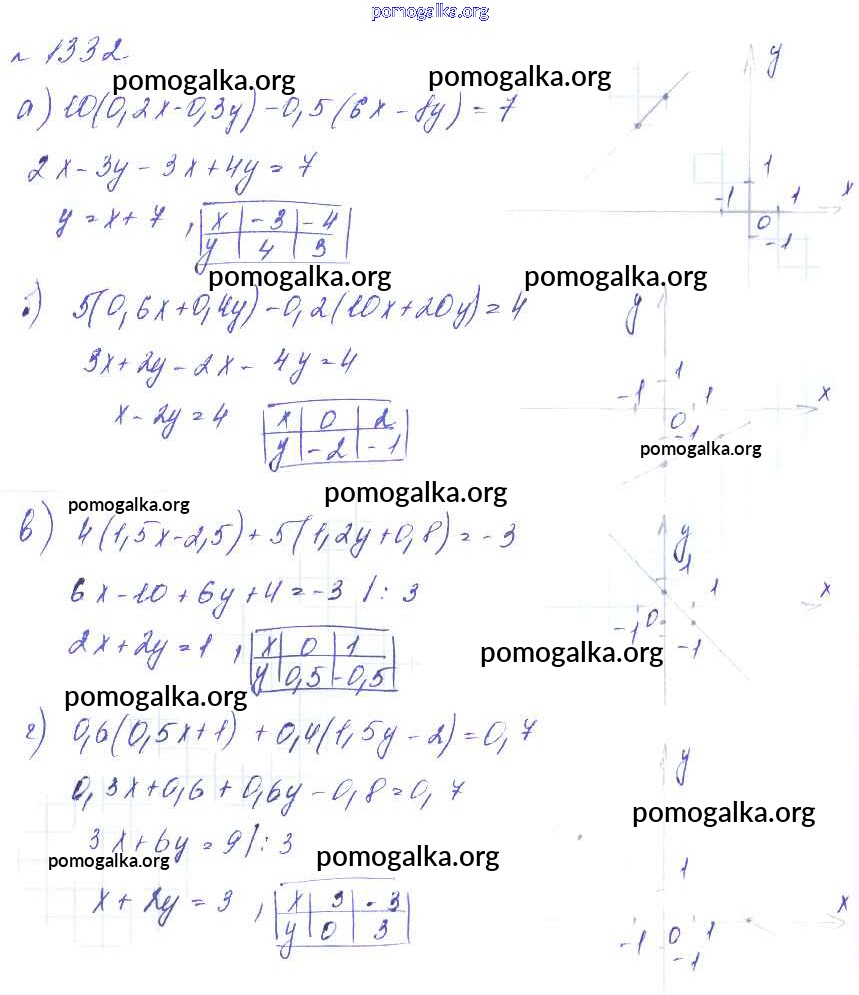 pomogalka.org
№ 1332.
pomogalka.org pomogalka.org
а) 10(0,2x-0,3y)-0,5(6x-8y)=7
2x-3y-3x+4y=7
y=x+7, x -3 -4
y 4 3
pomogalka.org pomogalka.org
б) 5(0,6x+0,4y)-0,2(10x+20y)=4
3x+2y-2x-4y=4
x-2y=4 x 0 2
y -2 -1
pomogalka.org
pomogalka.org
pomogalka.org
в) 4(1,5x-2,5)+5(1,2y+0,8)=-3
6x-10+6y+4=-3 /:3
2x+2y=1, x 0 1
y 0,5 -0,5
pomogalka.org
pomogalka.org
г) 0,6(0,5x+1)+0,4(1,5y-2)=0,7
0,3x+0,6+0,6y-0,8=0,7
pomogalka.org
3x+6y=9/:3
pomogalka.org pomogalka.org
x+2y=3, x 3 -3
y 0 3
y
1
-1 1 x
0
-1
y
1
-1 1 x
0
-1
y
1
1 x
-1 0
-1
y
1
x
-1 0 1
-1